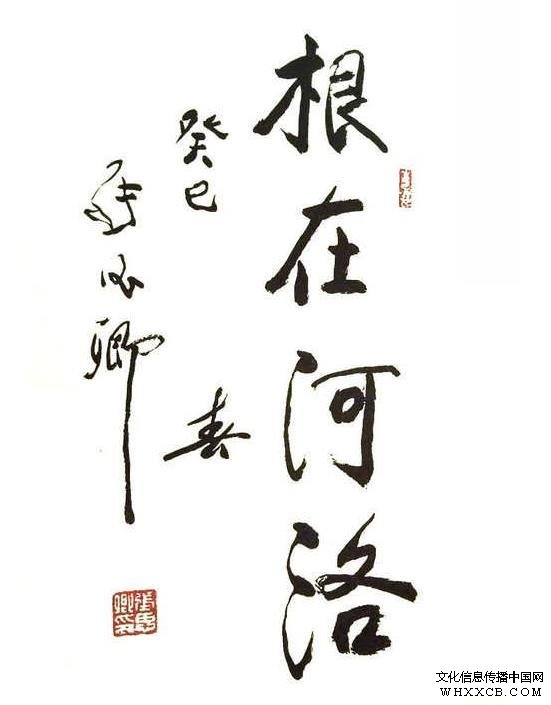 根在河洛
癸巳
春
卿
文化信息传播中国网
WHXXCB.COM